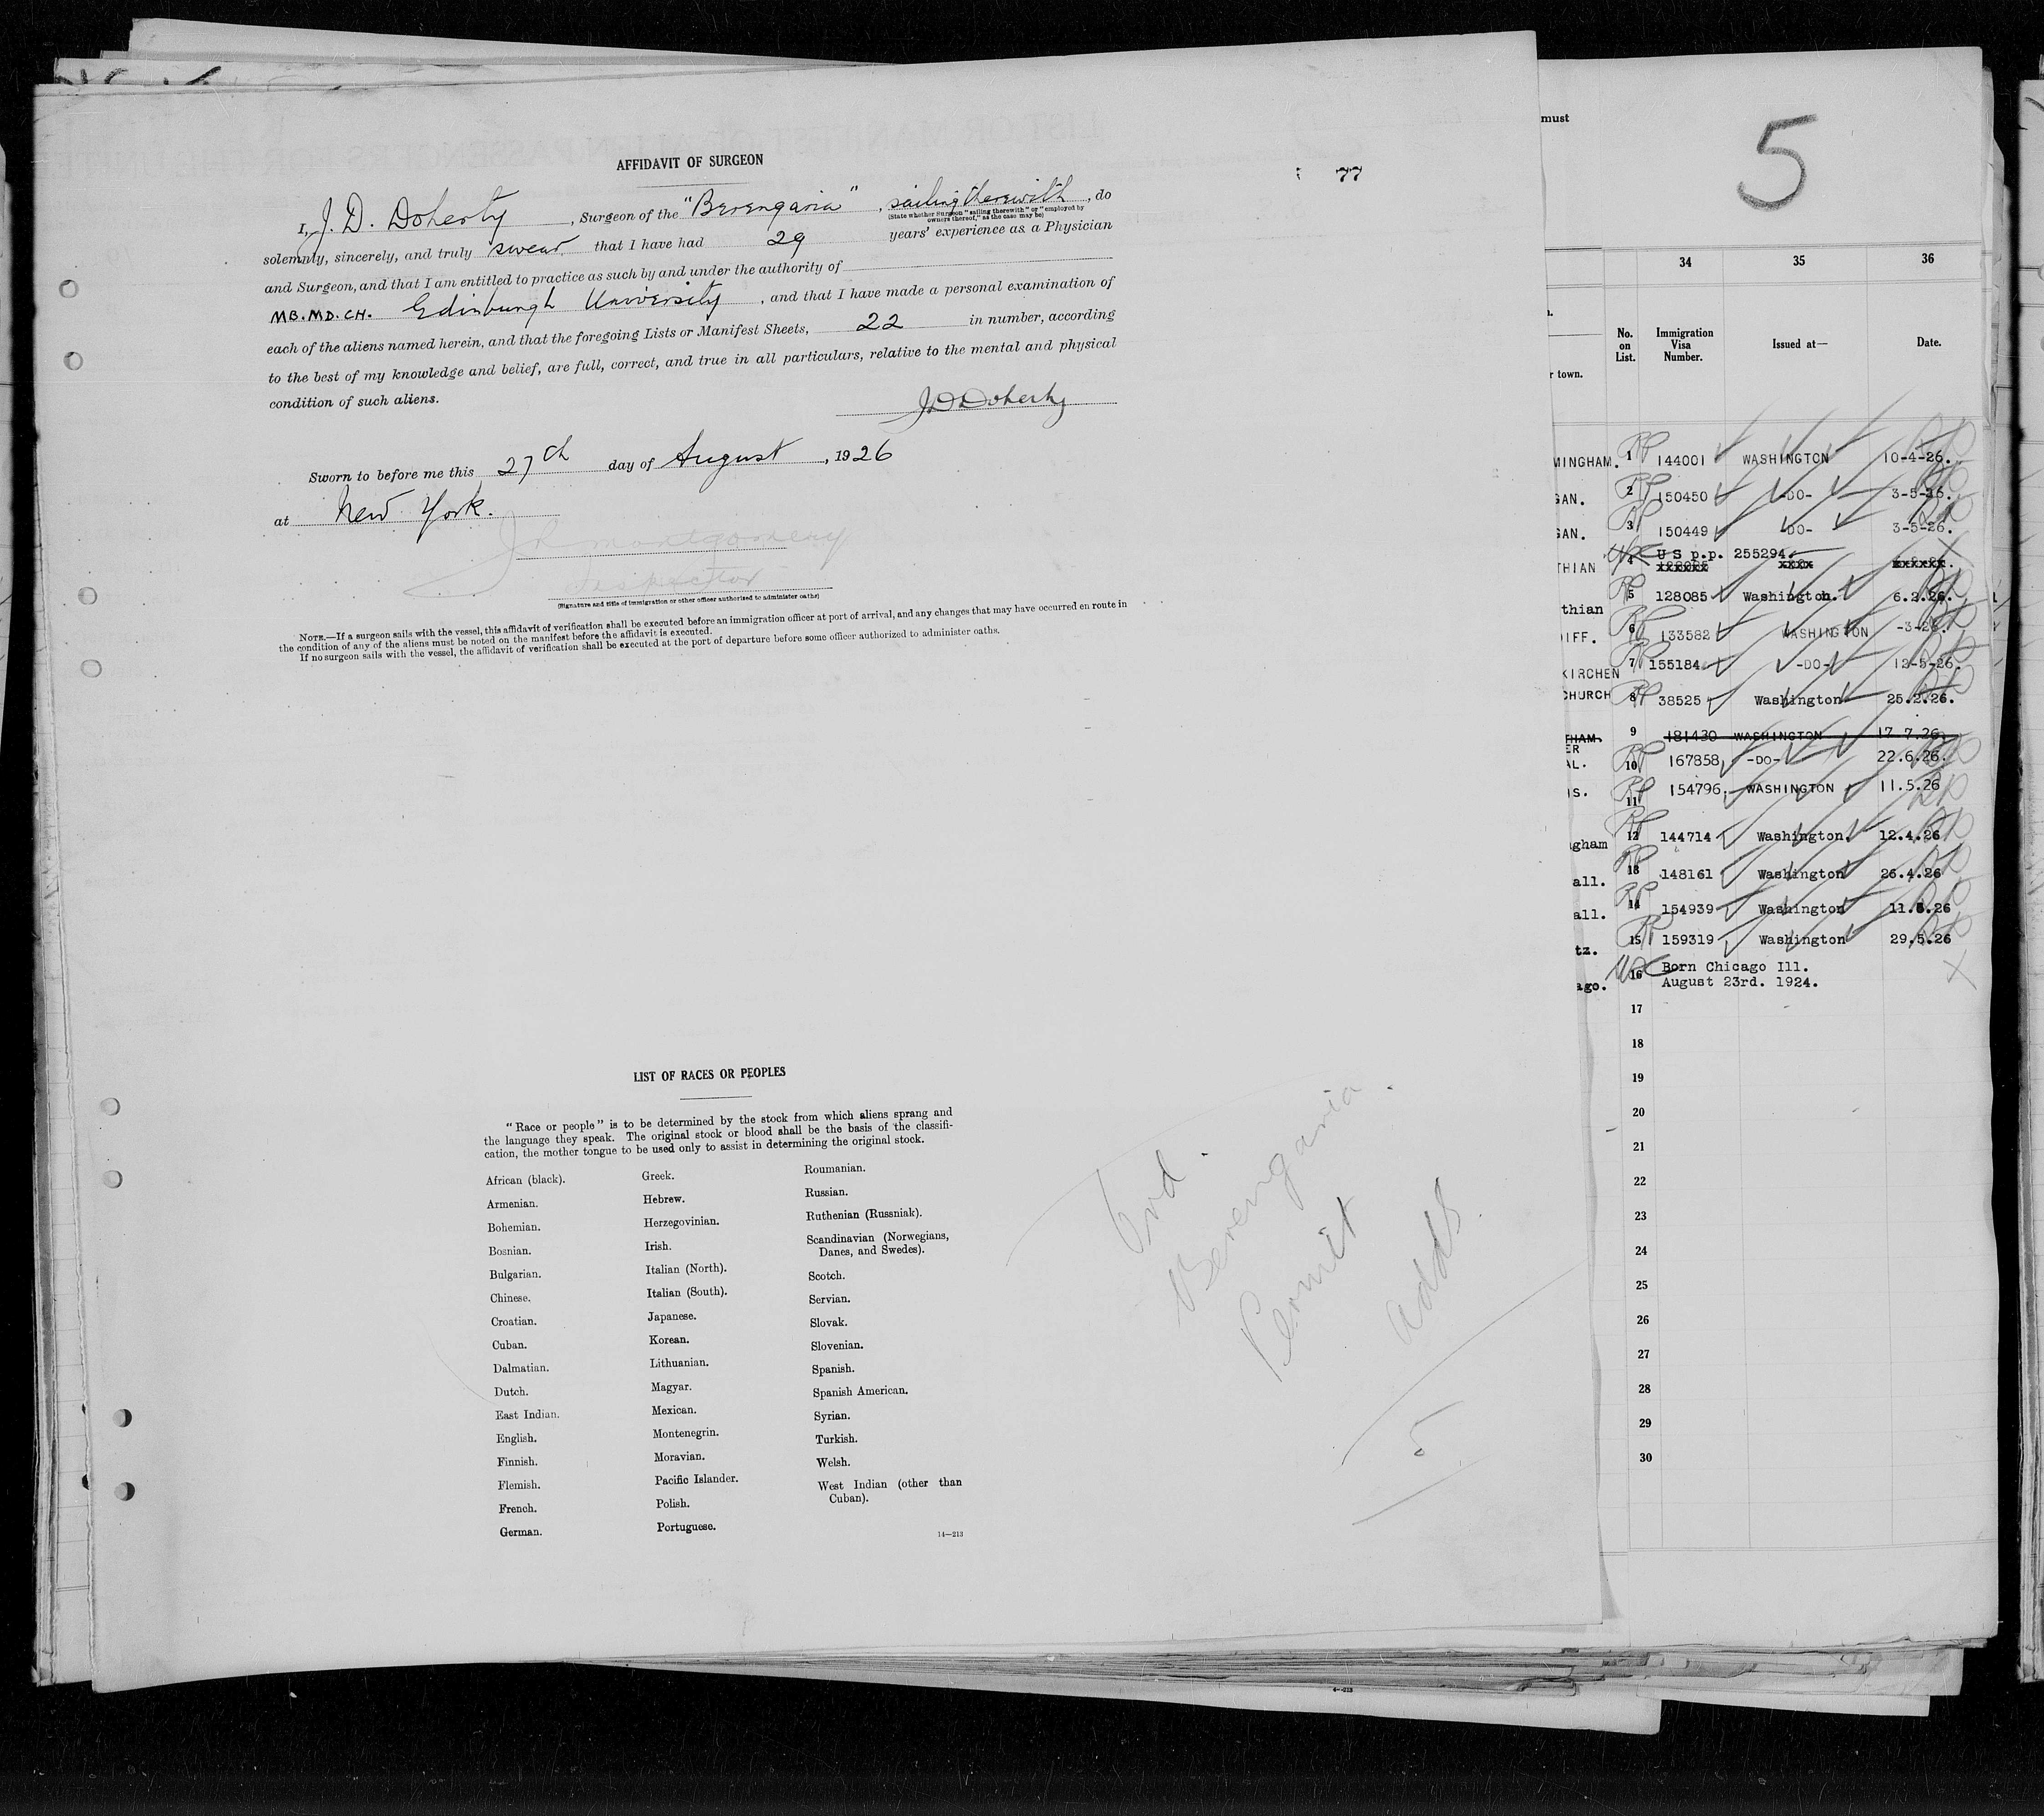 AFFIDAVIT OF SURGEON
77
I, J. D. Doherty, Surgeon of the "Berengaria", sailing therewith, do
(State whether Surgeon "sailing therewith" or "employed by
owners thereof," as the case may be)
solemnly, sincerely, and truly swear that I have had 29 years' experience as a Physician
and Surgeon, and that I am entitled to practice as such by and under the authority of
MB. MD. CH. Edinburgh University, and that I have made a personal examination of
each of the aliens named herein, and that the foregoing Lists or Manifest Sheets, 22 in number, according
to the best of my knowledge and belief, are full, correct, and true in all particulars, relative to the mental and physical
condition of such aliens.
J D Doherty
Sworn to before me this 27th day of August, 1926
at New York.
J R Montgomery
Inspector
(Signature and title of immigration or other officer authorized to administer oaths)
NOTE.—If a surgeon sails with the vessel, this affidavit of verification shall be executed before an immigration officer at port of arrival, and any changes that may have occurred en route in
the condition of any of the aliens must be noted on the manifest before the affidavit is executed.
If no surgeon sails with the vessel, the affidavit of verification shall be executed at the port of departure before some officer authorized to administer oaths.
LIST OF RACES OR PEOPLES
"Race or people" is to be determined by the stock from which aliens sprang and
the language they speak. The original stock or blood shall be the basis of the classifi-
cation, the mother tongue to be used only to assist in determining the original stock.
African (black).
Armenian.
Bohemian.
Bosnian.
Bulgarian.
Chinese.
Croatian.
Cuban.
Dalmatian.
Dutch.
East Indian.
English.
Finnish.
Flemish.
French.
German.
Greek.
Hebrew.
Herzegovinian.
Irish.
Italian (North).
Italian (South).
Japanese.
Korean.
Lithuanian.
Magyar.
Mexican.
Montenegrin.
Moravian.
Pacific Islander.
Polish.
Portuguese.
Roumanian.
Russian.
Ruthenian (Russniak).
Scandinavian (Norwegians,
Danes, and Swedes).
Scotch.
Servian.
Slovak.
Slovenian.
Spanish.
Spanish American.
Syrian.
Turkish.
Welsh.
West Indian (other than
Cuban).
14—213
Berengaria
Permit
adds
5
must
5
34 35 36
No. on List. Immigration Visa Number. Issued at— Date.
r town.
MINGHAM. 1 144001 WASHINGTON 10-4-26.
GAN. 2 150450 -DO- 3-5-26.
GAN. 3 150449 -DO- 3-5-26.
THIAN 4 U S p.p. 255294.
thian 5 128085 Washington. 6.2.26.
IFF. 6 133582 WASHINGTON -3-26.
KIRCHEN 7 155184 -DO- 12-5-26.
CHURCH 8 38525 Washington 25.2.26.
THAM. 9 181430 WASHINGTON 17 7.26.
ER
AL. 10 167858 -DO- 22.6.26.
IS. 11 154796 WASHINGTON 11.5.26
gham 12 144714 Washington. 12.4.26
all. 13 148161 Washington 26.4.26
all. 14 154939 Washington 11.5.26
tz. 15 159319 Washington 29.5.26
ago. 16 Born Chicago Ill.
August 23rd. 1924.
17
18
19
20
21
22
23
24
25
26
27
28
29
30